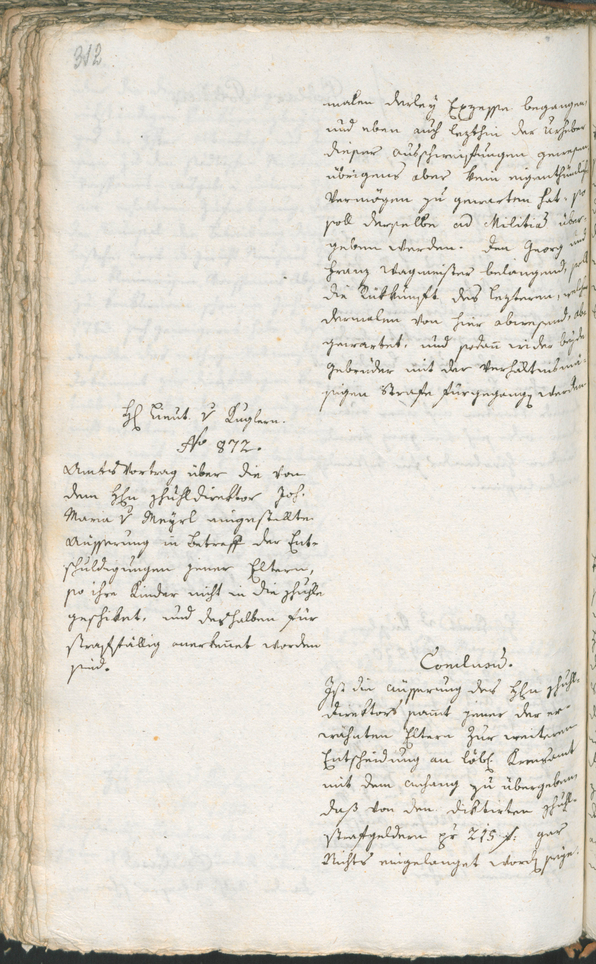 312
malen derley Exzesse begangen,
und eben auch lezthin der Urheber
dieser Ausschweifungen gewesen
übrigens aber kein eigenthümlich
Vermögen zu gewarten hat, so
soll derselbe ad Militiā über-
geben werden. Den Georg und
Franz Wagmeister belangend, soll
die Rükkunft des lezteren, welcher
dermalen von hier abwesend, ab-
gewartet, und sodann wider beyde
Gebrüder mit der Verhältnismä-
sigen Strafe fürgegangen werden.
H. Lieut. v Kuglern.
No 872.
Amtsvortrag über die von
dem Hhn Schuldirektor Joh.
Maria v Meyrl eingestellte
Äusserung in Betreff der Ent-
schuldigungen jener Eltern,
so ihre Kinder nicht in die Schuhle
geschiket, und desshalben für
straffällig anerkennet worden
sind.
Conclusū.
Ist die Äusserung des Hhn Schuhl-
direktors sammt jener der er-
wähnten Eltern zur weiteren
Entscheidung an löbl. Kreisamt
mit dem Anhang zu übergeben,
daß von den diktirten Schuhl-
strafgeldern pr 215 f. gar
Nichts eingelanget worden seye.